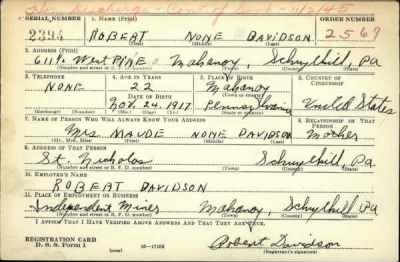 Discharge - Cont of Serv - 11/2/45
SERIAL NUMBER 1. NAME (Print) ORDER NUMBER
2394 ROBERT NONE DAVIDSON 2569
2. ADDRESS (Print)
611 West Pine Mahanoy Schuylkill, Pa
(Number and street or R. F. D. number) (Town) (County) (State)
3. TELEPHONE 4. AGE IN YEARS 5. PLACE OF BIRTH 6. COUNTRY OF CITIZENSHIP
NONE 22 Mahanoy
DATE OF BIRTH (Town or county)
Nov. 24, 1917 Pennsylvania United States
(Exchange) (Number) (Mo.) (Day) (Yr.) (State or country)
7. NAME OF PERSON WHO WILL ALWAYS KNOW YOUR ADDRESS 8. RELATIONSHIP OF THAT PERSON
Mrs MAUDE NONE DAVIDSON Mother
(Mr., Mrs., Miss) (First) (Middle) (Last)
9. ADDRESS OF THAT PERSON
St. Nicholas Schuylkill, Pa
(Number and street or R. F. D. number) (Town) (County) (State)
10. EMPLOYER'S NAME
ROBERT DAVIDSON
11. PLACE OF EMPLOYMENT OR BUSINESS
Independent Miner Mahanoy, Schuylkill Pa
(Number and street or R. F. D. number) (Town) (County) (State)
I AFFIRM THAT I HAVE VERIFIED ABOVE ANSWERS AND THAT THEY ARE TRUE.
REGISTRATION CARD
D. S. S. Form 1 (over) 16-17105 Robert Davidson
(Registrant's signature)